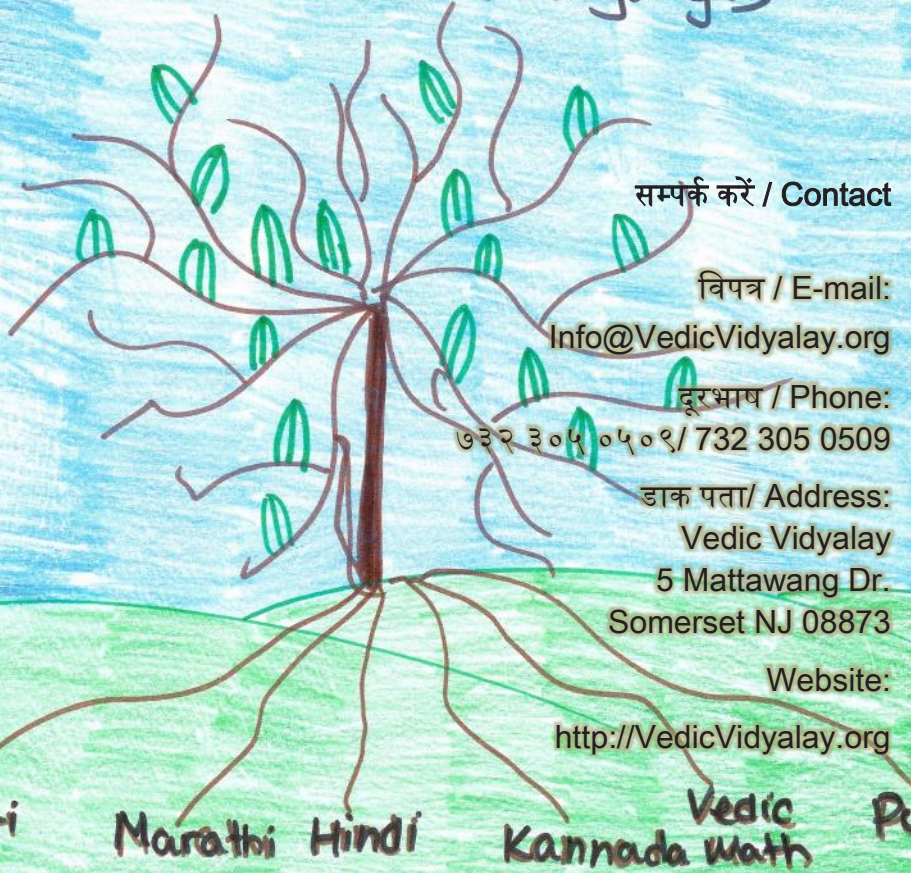 सम्पर्क करें / Contact
विपत्र / E-mail:
Info@VedicVidyalay.org
दूरभाष / Phone:
७३२ ३०५ ०५०९/ 732 305 0509
डाक पता/ Address:
Vedic Vidyalay
5 Mattawang Dr.
Somerset NJ 08873
Website:
http://VedicVidyalay.org
Marathi Hindi Kannada Vedic Math